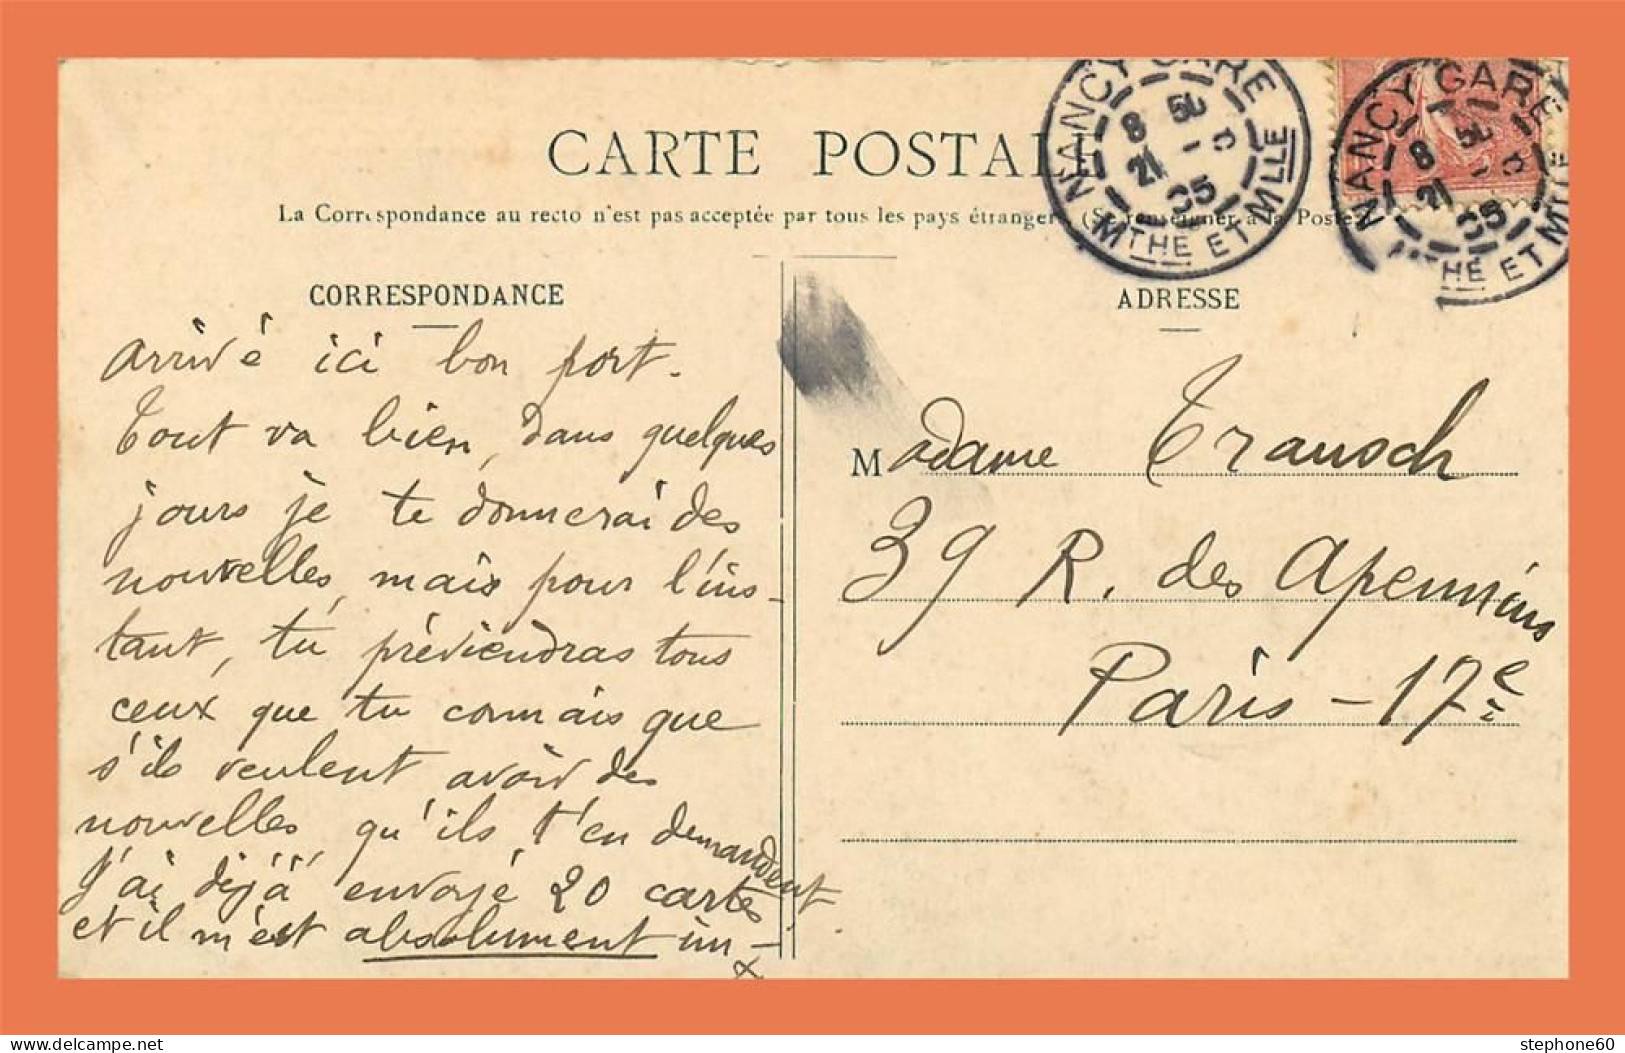 CARTE POSTALE
La Correspondance au recto n'est pas acceptée par tous les pays étrangers (Se renseigner à la Poste)
NANCY GARE
8 50
21 - 3
05
MTHE ET MLLE
NANCY GARE
8 50
21 - 3
05
HE ET MLLE
CORRESPONDANCE
arrivé ici bon port.
Tout va bien, dans quelques
jours je te donnerai des
nouvelles, mais pour l'ins-
tant, tu préviendras tous
ceux que tu connais que
s'ils veulent avoir des
nouvelles, qu'ils t'en demandent
J'ai déjà envoyé 20 cartes
et il m'est absolument im-
ADRESSE
Madame Trausch
39 R. des Apennins
Paris - 17e
delcampe.net
stephone60